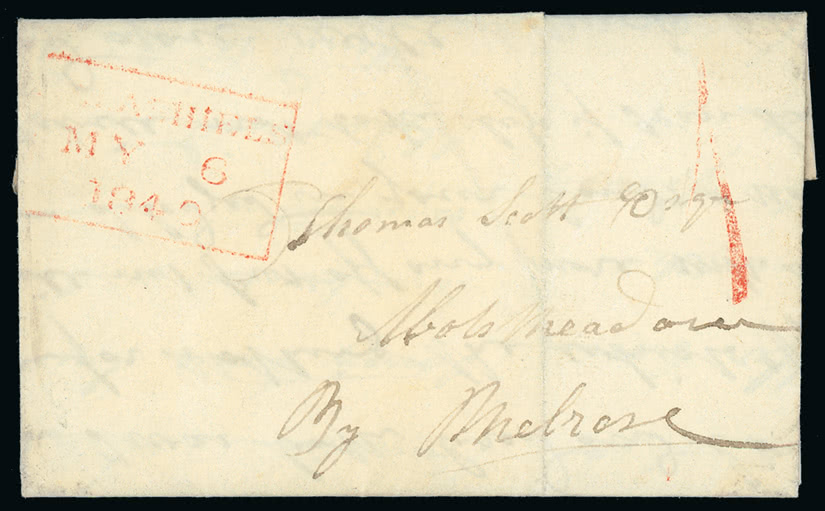 MY 6
1840
Thomas Scott Esqr
Abots Meadow
By Melrose